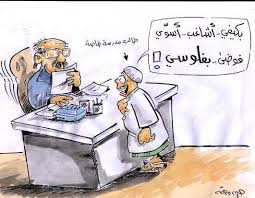 بكيفي.. أشاغب.. أسوّي
فوضى.. بفلوسي!
طالب مدرسة خاصة